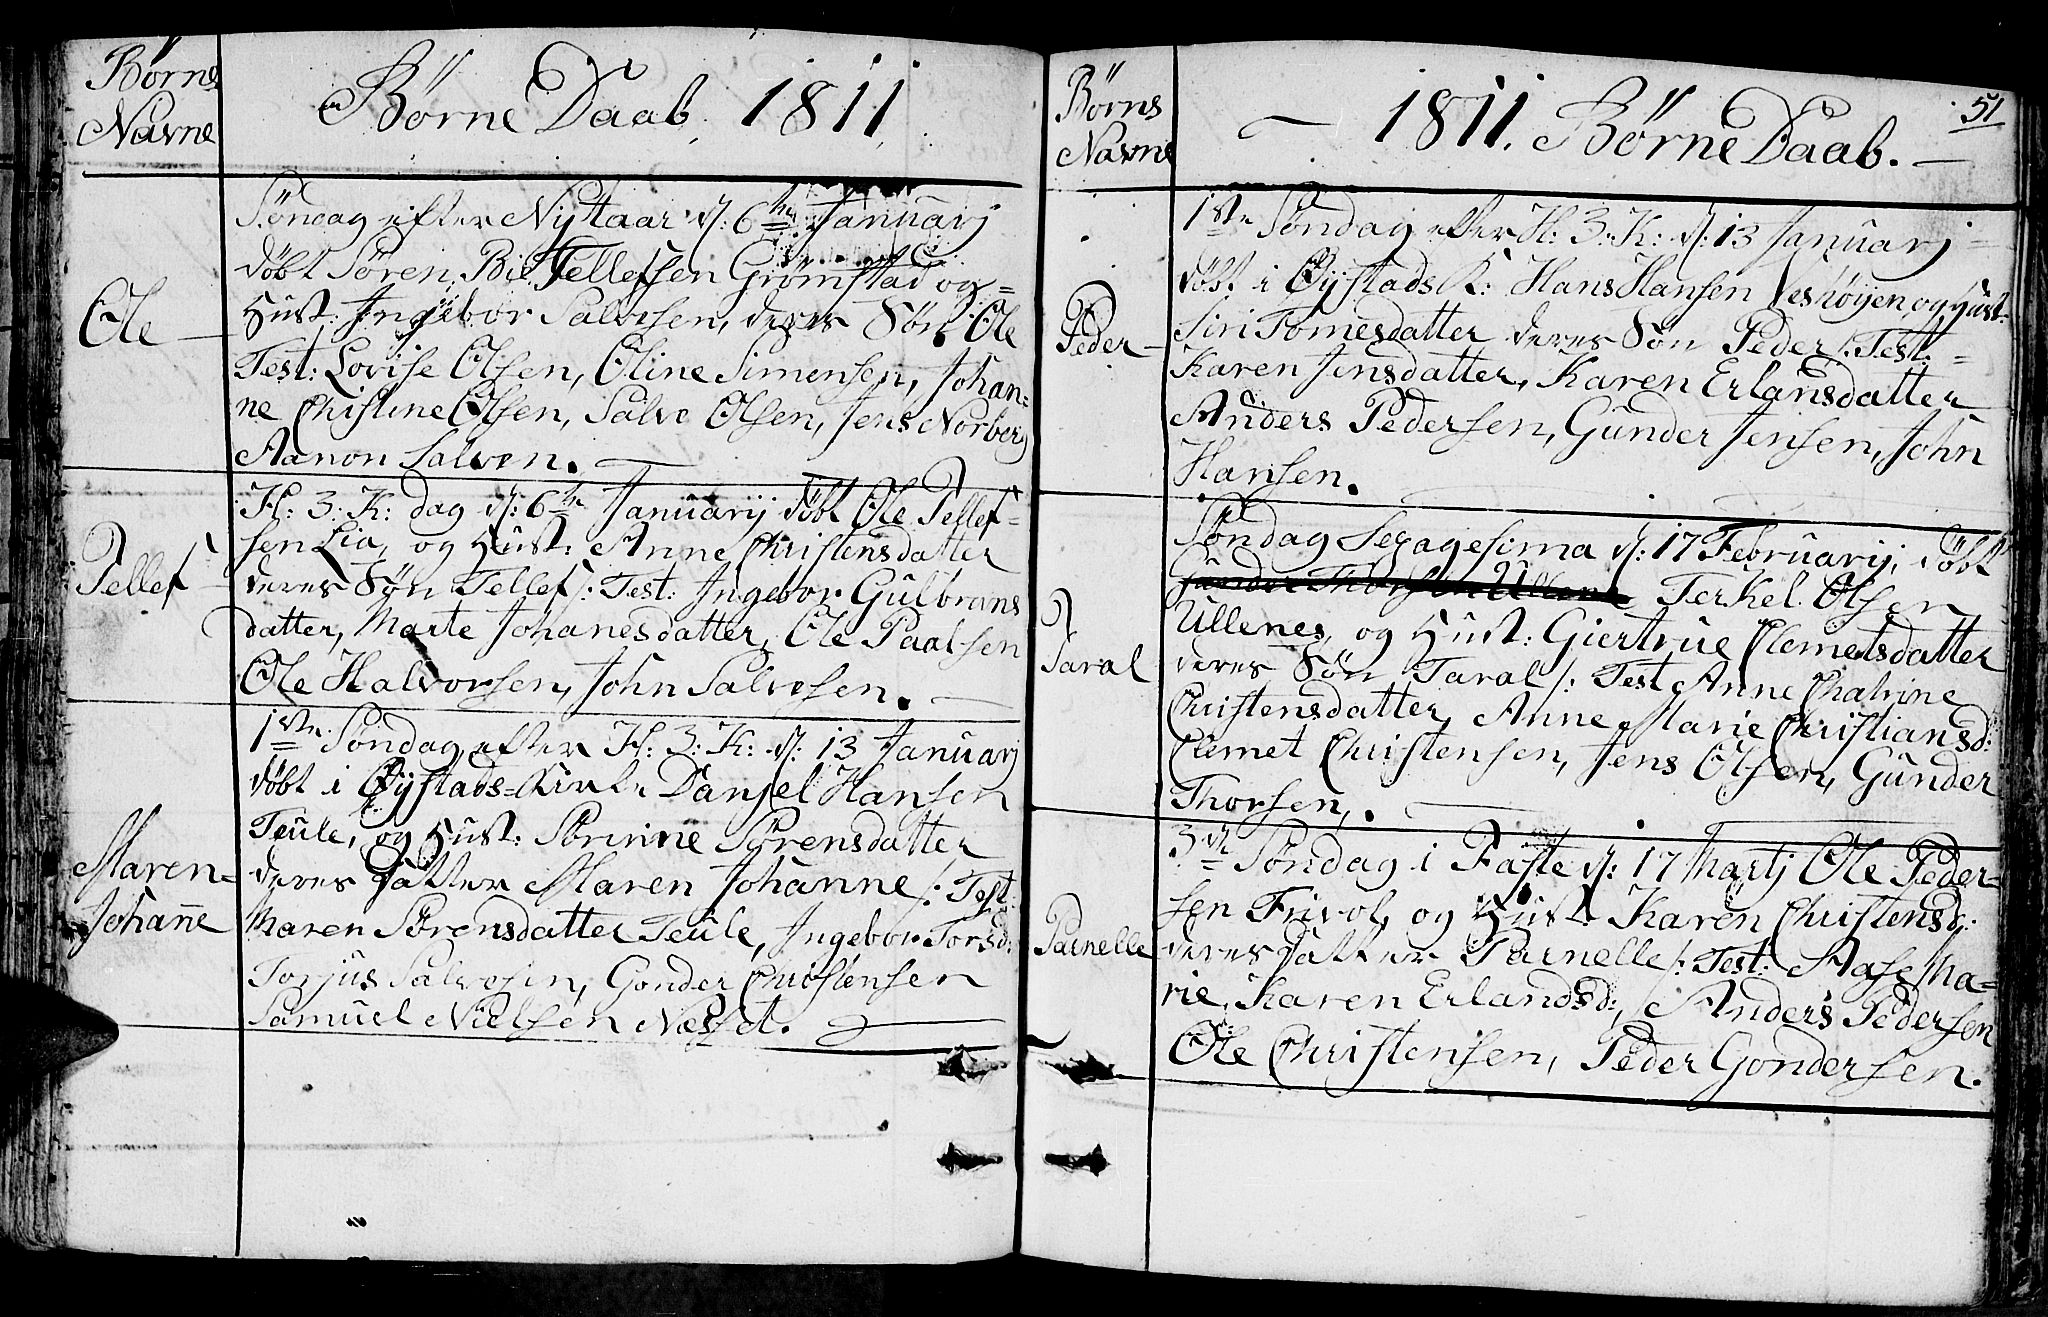 Børne
Navne
Børne Daab. 1811.
Ole
Søndag efter Nytaar d: 6te Januarj
døbt Søren Bie Tellefsen Grømstad og
Hust: Ingebor Salvesen, deres Søn Ole
Test: Lovise Olsen, Oline Simensen, Johan=
ne Christine Olsen, Salve Olsen, Jens Norberg
Aanon Salven.
Tellef
H: 3: K: dag d: 6te Januarij døbt Ole Tellef=
sen Lia, og Hust: Anne Christensdatter
deres Søn Tellef /: Test: Ingebor Gulbrans
datter, Marte Johanesdatter, Ole Paalsen
Ole Halvorsen, John Salvesen.
Maren=
Johanne
1ste Søndag efter H: 3: K: d: 13 Januarj
døbt i Øystads=Kirke Danjel Hansen
Teule, og Hust: Sørinne Sørensdatter
deres datter Maren Johanne /: Test:
Maren Sørensdatter Teule, Ingebor Torsd:
Torjus Salvesen, Gonder Christensen
Samuel Nielsen Næsset.
Børns
Navne
1811. Børne Daab.
51
Peder
1ste Søndag efter H: 3: K: d: 13 Januarj
døbt i Øystads K: Hans Hansen Veshøyen og Hust:
Siri Tomesdatter deres Søn Peder /: Test:
Karen Jensdatter, Karen Erlansdatter
Anders Pedersen, Gunder Jensen, John
Hansen.
Taral
Søndag Sexagesima d: 17 Februarij, døbt
Gunder Thorsen Ullenes Terkel Olsen
Ullenes, og Hust: Giertrue Clemetsdatter
deres Søn Taral /: Test Anne Chatrine
Christensdatter, Anne Marie Christiansd:
Clemet Christensen, Jens Olsen, Gunder
Thorsen,.
Parnelle
3de Søndag i Faste d: 17 Martj Ole Peder=
sen Frivol, og Hust: Karen Christensd:
deres datter Parnelle /: Test: Aase Ma=
rie, Karen Erlandsd:, Anders Pedersen
Ole Christensen, Peder Gondersen.